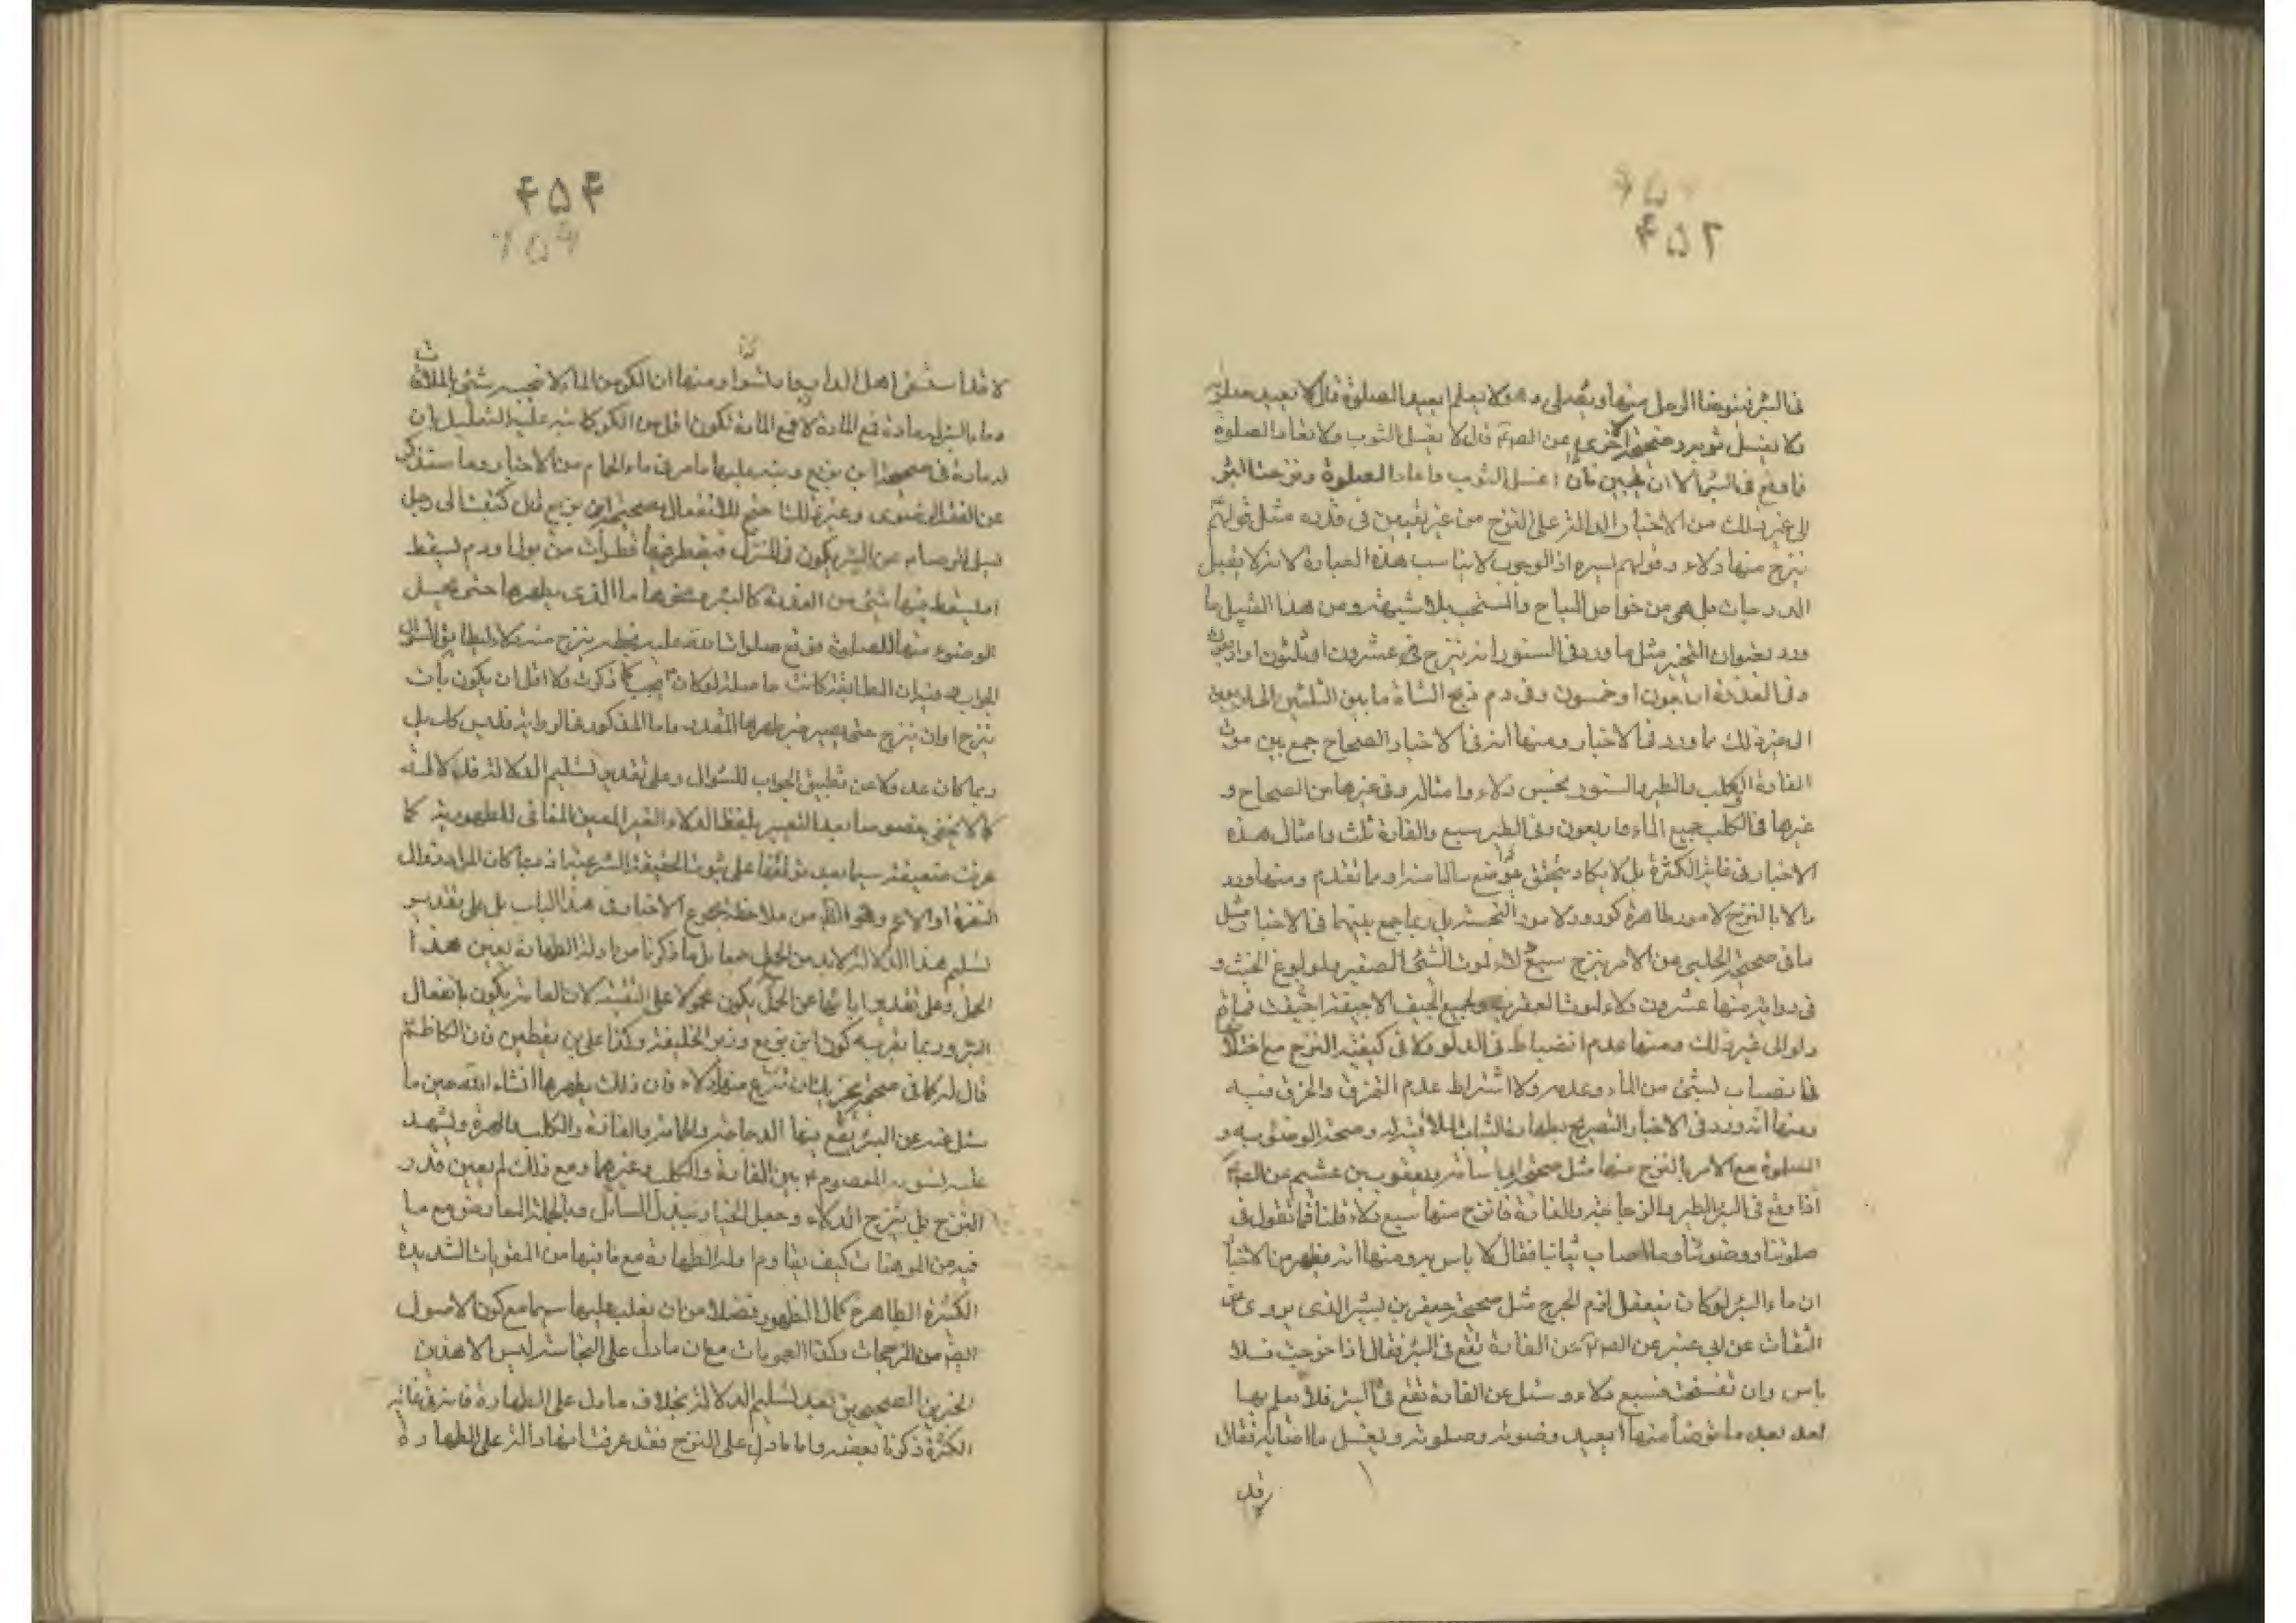 ۴۵۲
فى البئر فيتوضا الرجل منها ويصلى وهو لا يعلم ايعيد الصلوة قال لا يعيد صلوته
ولا يغسل ثوبه وصحيحة اخرى عن الصم قال لا يغسل الثوب ولا تعاد الصلوة
مما وقع فى البئر الا ان ينتن فان انتن غسل الثوب واعاد الصلوة ونزحت البئر
الى غير ذلك من الاخبار الدالة على النزح من غير تعيين فى قدره مثل قولهم
ينزح منها دلاء وقولهم يسيرة اذ الوجوب لا يناسب هذه العبارة لانه لا يقبل
الدرجات بل هى من خواص المباح والمستحب بلا شبهة ومن هذا القبيل ما
ورد بعنوان التخيير مثل ما ورد فى السنور انه ينزح عشرون او ثلثون او اربعون
وفى العذرة اربعون او خمسون وفى دم ذبح الشاة ما بين الثلثين الى الاربعين
الى غير ذلك مما ورد فى الاخبار ومنها انه فى الاخبار الصحاح جمع بين موت
الفارة والكلب والطير والسنور بخمس دلاء وامثاله وفى غيرها من الصحاح و
غيرها فى الكلب جميع الماء واربعون وفى الطير سبع والفارة ثلث وامثال هذه
الاخبار فى غاية الكثرة بل لا يكاد يتحقق موضع سالما منه او مما تقدم ومنها ورود
الامر بالنزح لامور طاهرة كوروده لامور النجسة بل ربما جمع بينهما فى الاخبار مثل
ما فى صحيحة الحلبى من الامر بنزح سبع دلاء لموت الشئ الصغير ولوقوع الجنب و
فى رواية منها عشرون دلاء لموت العقرب ولجميع الجيف الا جيفة اجيفت فمائة
دلو الى غير ذلك ومنها عدم انضباط فى الدلو ولا فى كيفية النزح مع اختلاف
فى انصباب لشئ من الماء وعدمه ولا اشتراط عدم التخرق والخرق فيه
ومنها انه ورد فى الاخبار التصريح بطهارة الثياب الملاقية له وصحة الوضوء به و
الصلوة مع الامر بالنزح منها مثل صحيحة ابى اسامة ويعقوب بن عثيم عن الصم
اذا وقع فى البئر الطير والدجاجة والفارة فانزح منها سبع دلاء قلنا فما تقول فى
صلوتنا ووضوئنا وما اصاب ثيابنا فقال لا باس به ومنها انه يظهر من الاخبار
ان ماء البئر لو كان ينفعل لزم الحرج مثل صحيحة جعفر بن بشير الذى يروى عن
الثقات عن ابى عيينة عن الصم عن الفارة تقع فى البئر فقال اذا خرجت فلا
باس وان تفسخت فسبع دلاء وسئل عن الفارة تقع فى البئر فلا يعلم بها
احد بعد ما توضأ منها ايعيد وضوئه وصلوته ويغسل ما اصابه فقال
وقد
۴۵۴
لا قد استقى اهل الدار بها ورشوا ومنها ان الكر من الماء لا ينجسه شئ بالملاقات
وماء البئر له مادة فمع المادة لا مع المادة تكون اقل من الكر كما نبه عليه التعليل بان
له مادة فى صحيحة ابن بزيع وينبه عليها ما مر فى ماء الحمام من الاخبار وما ستذكر
عن الفقه الرضوى وغير ذلك احتج للانفعال بصحيحة ابن بزيع قال كتبت الى رجل
ليسال الرضا عن البئر يكون فى المنزل فيقطر فيها قطرات من بول او دم او يسقط
فيها شئ من العذرة كالبعرة ونحوها ما الذى يطهرها حتى يحل
الوضوء منها للصلوة فوقع صلوات الله عليه بخطه ينزح منه دلاء ليطابق السؤال
الجواب وفيه ان المطابقة كانت حاصلة لو كان يجب كما ذكرت ولا اقل ان يكون بان
ينزح او ان ينزح حتى يصير مطهرها المقدر واما المذكور فى الرواية فليس كك بل
ربما كان عدولا عن تطبيق الجواب للسؤال وعلى تقدير تسليم الدلالة فدلالته
كما لا يخفى خصوصا بعد التعبير بلفظ الدلاء الغير المعين المنافى للمطهرية كما
عرفت ضعيفة سيما بعد توقفها على ثبوت الحقيقة الشرعية اذ ربما كان المراد زوال
النفرة او الاعم وهو الظ من ملاحظة مجموع الاخبار فى هذا الباب بل على تقدير
تسليم هذا الدلالة لابد من الحمل جمعا بل ما ذكرنا من ادلة الطهارة يعين هذا
الحمل وعلى تقدير ابائها عن الحمل يكون محمولا على التقية لان العامة يكون بانفعال
البئر وربما يقربه كون ابن بزيع وزير الخليفة وكذا على بن يقطين فان الكاظم
قال له كما فى صحيحة يجزيك ان تنزح منها دلاء فان ذلك يطهرها انشاء الله حين ما
سئل عنه عن البئر يقع فيها الدجاجة والحمامة والفارة والكلب والهرة ويشهد
عليه تسوية المعصوم بين الفارة والكلب وغيرهما ومع ذلك لم يعين قدر
النزح بل ينزح الدلاء وجعل الخيار بيد السائل وبالجملة التعارض مع ما
فيه من الموهنات كيف يقاوم ادلة الطهارة مع ما فيها من المقويات الشديدة
الكثيرة الظاهرة كمال الظهور فضلا من ان يغلب عليها سيما مع كون الاصول
ايضا من المرجحات وكذا العمومات مع ان ما دل على النجاسة ليس الا هذين
الخبرين الصحيحين بعد تسليم الدلالة بخلاف ما دل على الطهارة فانه فى غاية
الكثرة ذكرنا بعضه واما ما دل على النزح فقد عرفت انها دالة على الطهارة